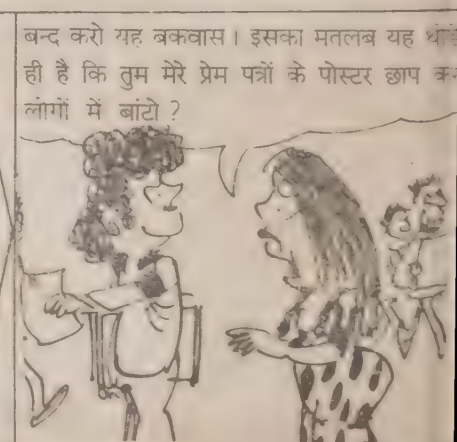 बन्द करो यह बकवास । इसका मतलब यह थोड़े
ही है कि तुम मेरे प्रेम पत्रों के पोस्टर छाप कर
लोगों में बांटो ?